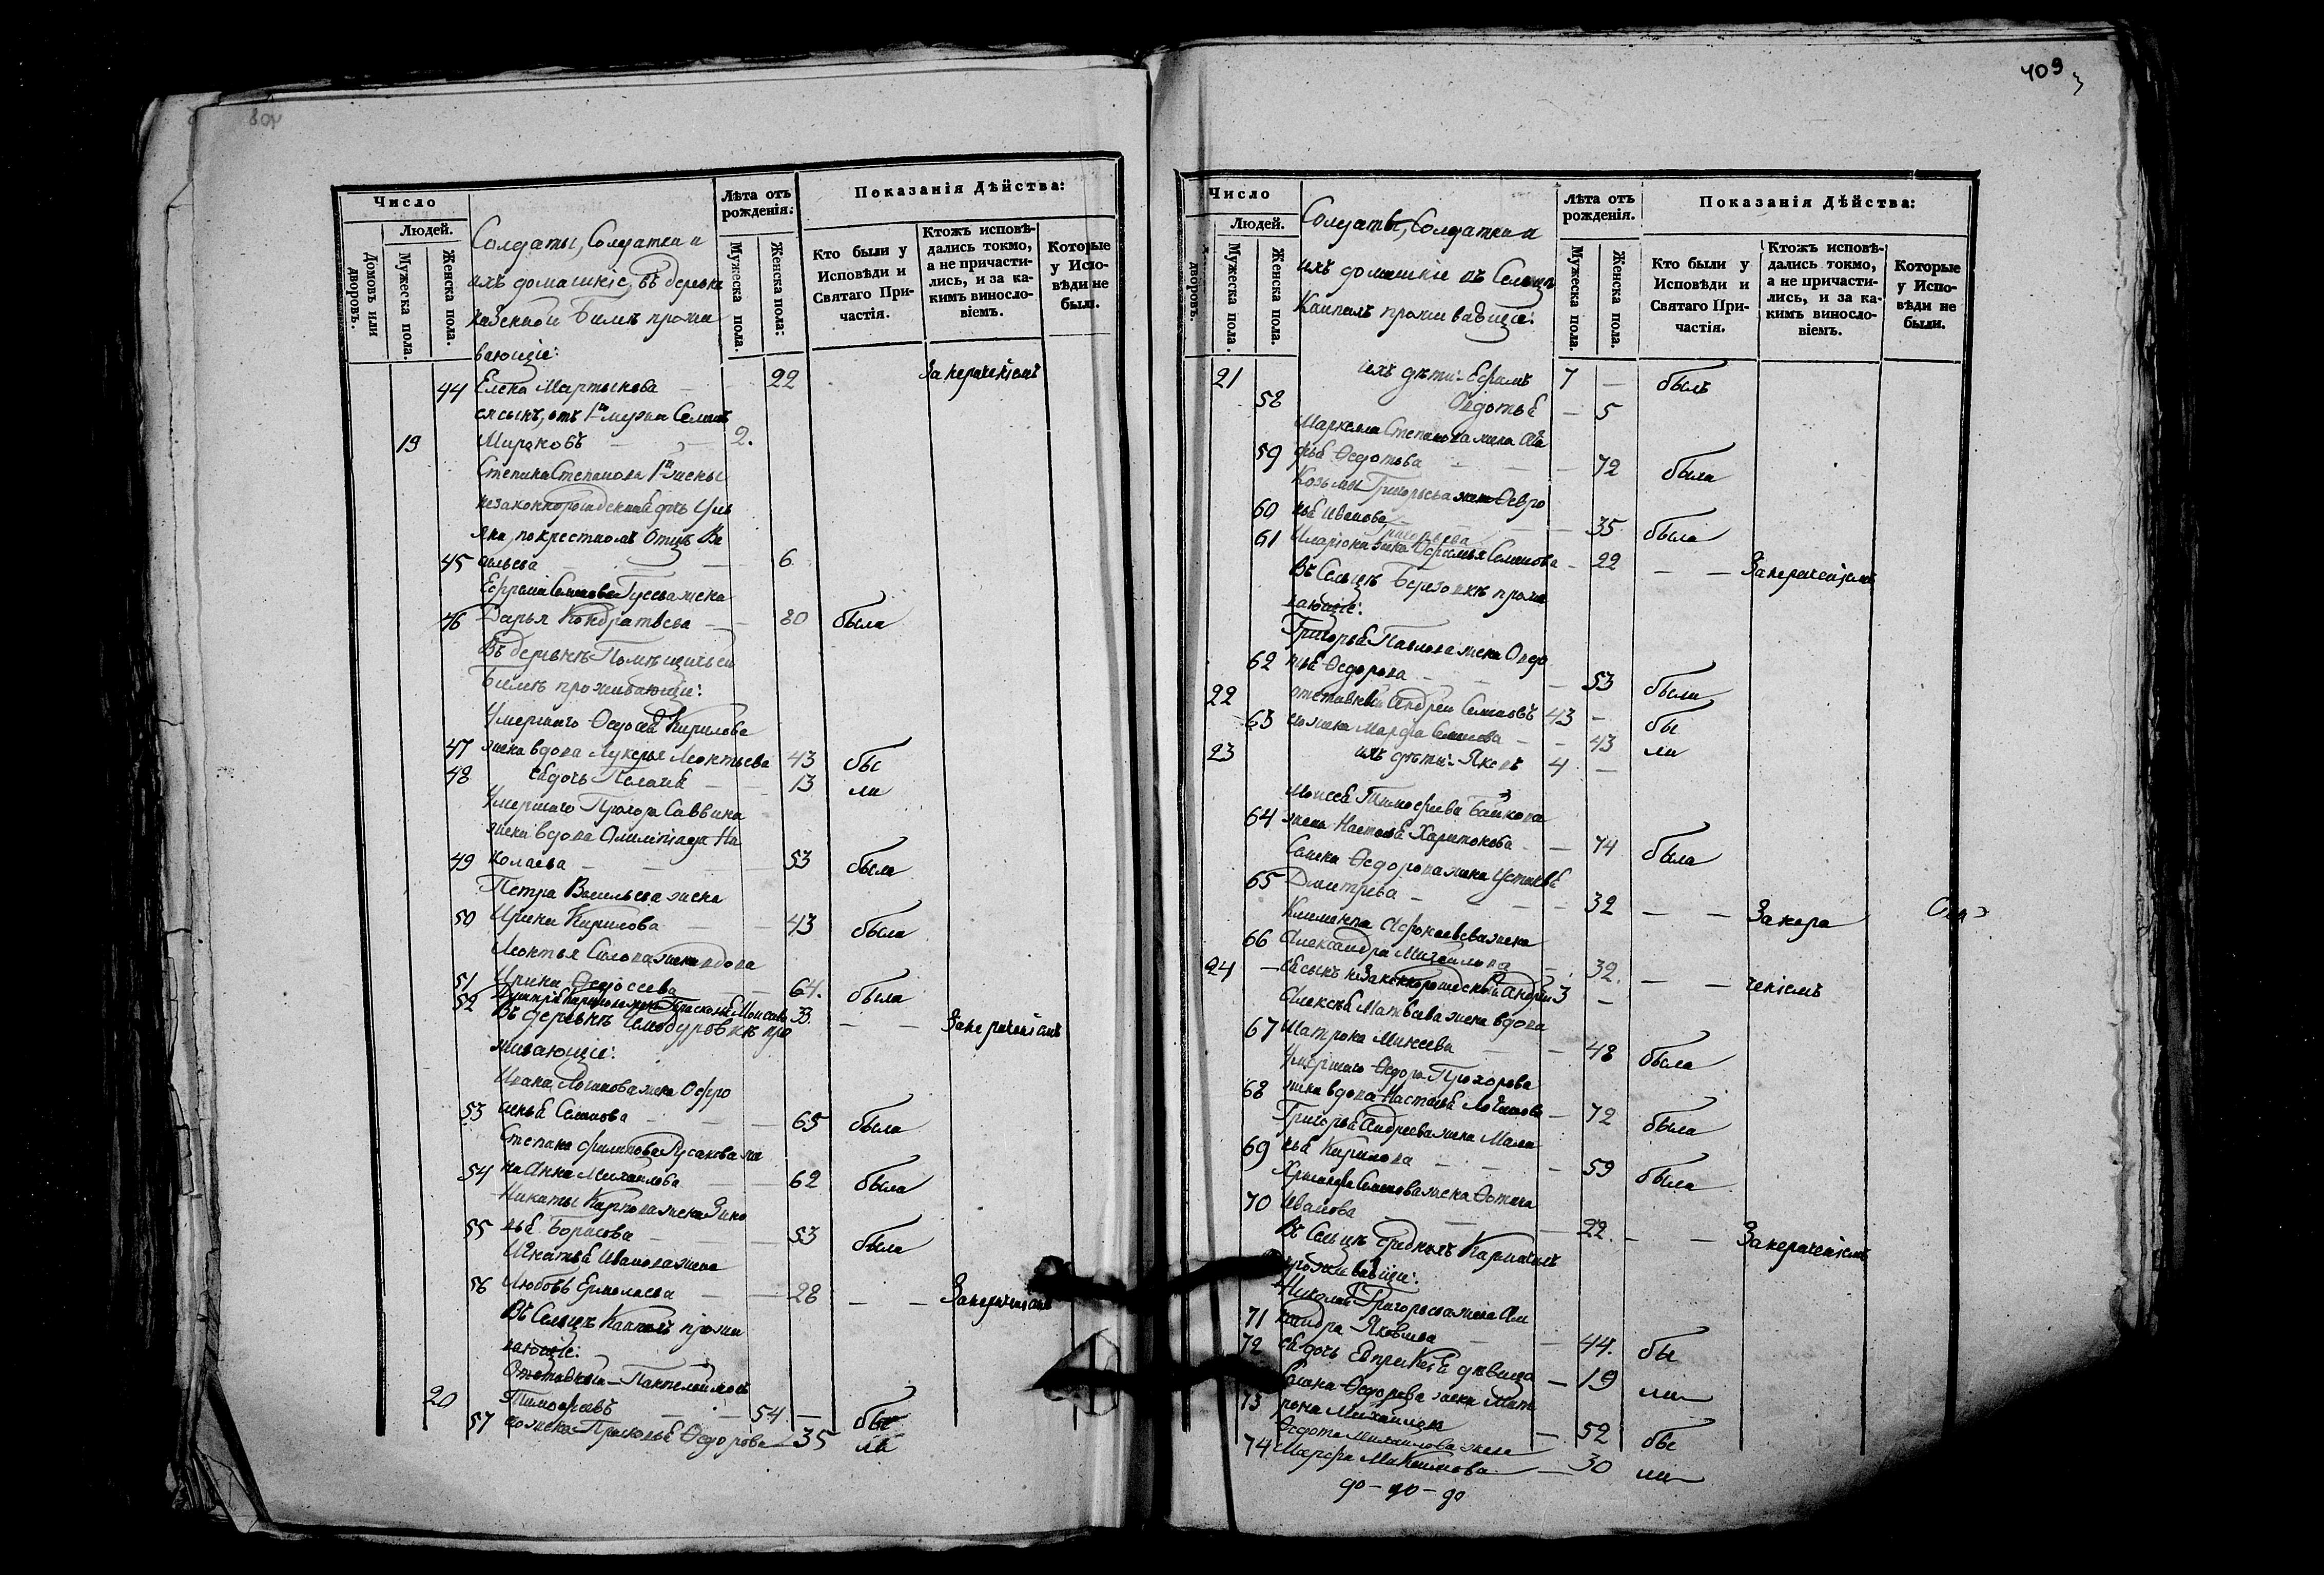 409
Число
Людей.
Домовъ или дворовъ.
Мужеска пола.
Женска пола.
Солдаты, Солдатки и
ихъ домашніе, въ деревнѣ
Казенной Билкѣ прожи
вающіе:
Лѣта отъ рожденія:
Мужеска пола.
Женска пола:
Показанія Дѣйства:
Кто были у Исповѣди и Святаго Причастія.
Ктожъ исповѣдались токмо, а не причастились, и за какимъ винословіемъ.
Которые у Исповѣди не были.
44 Елена Мартынова — 22 За нераченіемъ
ея сынъ, отъ 1го мужа Семенъ
19 Мироновъ — 2.
Степана Степанова 1й жены
незаконнорожденная дочь Уль
яна, по крестномъ отцѣ Ва
45 сильева — 6
Ефрема Семенова Гусева жена
46 Дарья Кондратьева — 80 была
Въ деревнѣ Помѣщичьей
Билкѣ проживающіе:
Умершаго Ѳедосѣя Кирилова
47 жена вдова Лукерья Леонтьева 43 бы
48 ея дочь Пелагея — 13 ли
Умершаго Прохора Саввина
жена вдова Олимпіада Ни
49 колаева — 53 была
Петра Васильева жена
50 Ирина Кирилова — 43 была
Леонтья Силова жена вдова
51 Ирина Ѳедосеева — 64. была
52 Прасковья Моисеева 33. — — За нераченіемъ
Въ деревнѣ Чемодуровкѣ про
живающіе:
Ивана Логинова жена Офро
53 синья Семенова — 65 была
Степана Филипова Русакова же
54 на Анна Михайлова — 62 была
Никиты Карпова жена Зино
55 вья Борисова — 53 была
Игнатья Иванова жена
56 Любовь Ермолаева — 28 — — За нераченіемъ
Въ Сельцѣ прожи
вающіе:
Отставной — Пантелеймонъ
20 Тимофеевъ — 54 — бы
57 его жена Прасковья Ѳедорова — 35 ли
Число
Людей.
дворовъ.
Мужеска пола.
Женска пола.
Солдаты, Солдатки и
ихъ домашніе въ Сельцѣ
проживающіе:
Лѣта отъ рожденія.
Мужеска пола.
Женска пола.
Показанія Дѣйства:
Кто были у Исповѣди и Святаго Причастія.
Ктожъ исповѣдались токмо, а не причастились, и за какимъ винословіемъ.
Которые у Исповѣди не были.
21 ихъ дѣти: Ефимъ 7 — былъ
58 Авдотья — 5
Маркела Степанова жена Ага
59 фья Ѳедотова — 72 была
Козьмы Григорьева жена Ѳевро
60 нья Иванова — 35 была
61 Иларіона жена Офимья Семенова — 22 — — За нераченіемъ
Въ Сельцѣ Березовкѣ прожи
вающіе:
Григорья Павлова жена Овдо
62 тья Ѳедорова — 53 была
22 отставной Андрей Семеновъ 43 — бы
63 его жена Марфа Семенова — 43 ли
23 ихъ дѣти: Яковъ 4 —
Моисея Тимофеева Байкова
64 жена Настасья Харитонова — 74 была
Савина Ѳедорова жена Устинья
65 Дмитрева — 32 — — За нера
Климента Афонасьева жена
66 Александра Михайлова — 32. — — ченіемъ
24 — ея сынъ незаконнорожденный Андрей 3 —
Алексѣя Матвеева жена вдова
67 Матрона Микеева — 48 была
Умершаго Ѳедора Прохорова
68 жена вдова Настасья Логинова — 72 была
Григорья Андреева жена Мала
69 нья Кирилова — 59 была
Семенова жена Ѳотина
70 Иванова — 22. — — За нераченіемъ
Въ Сельцѣ Среднемъ
проживающіе:
Николая Григорьева жена Ам
71 Яковлева — 44. бы
72 ея дочь Евпраксея дѣвица — 19 ли
Ивана Ѳедорова жена Мат
73 рона Михайлова — 52 бы
Ѳедота Михайлова жена
74 Марфа Максимова — 30 ли
до — до — до